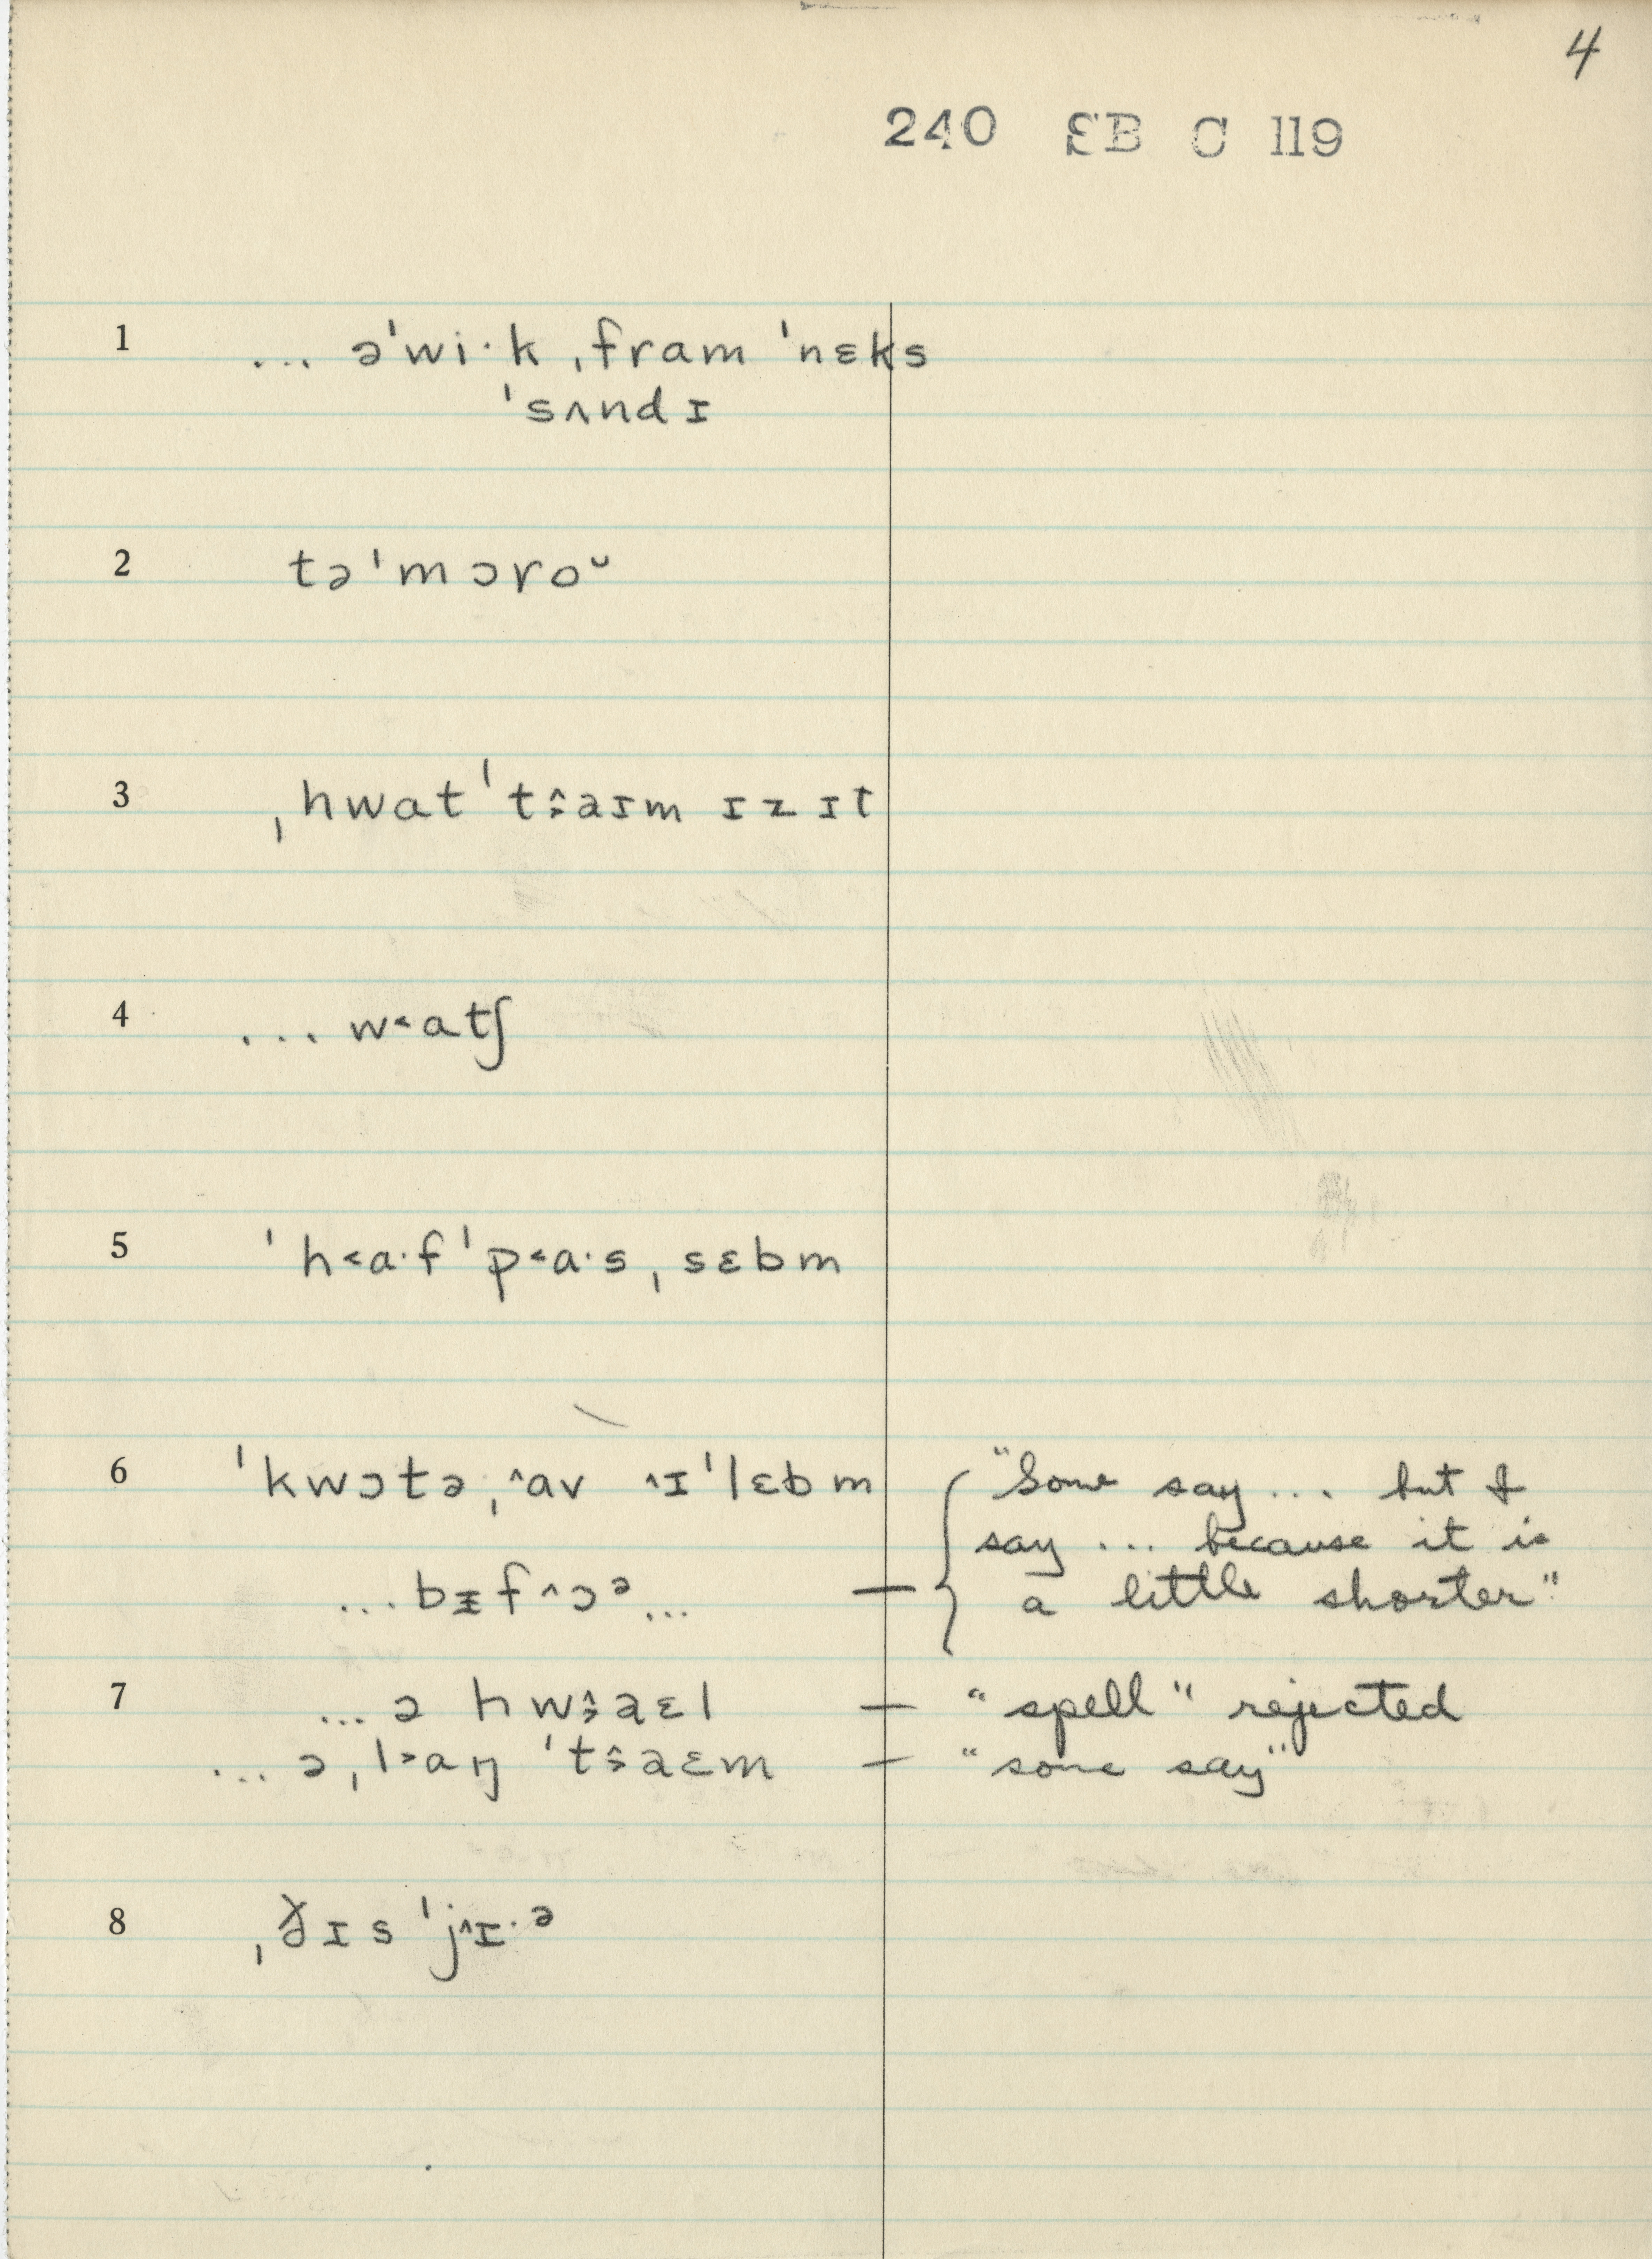 4
240 SB C 119
1 ... əˈwi·k ˌfram ˈnɛks
ˈsʌndɪ
2 təˈmɔroᵕ
3 ˌhwatˈt˰̂aɪm ɪz ɪt
4 ... w˂atʃ
5 ˈh˂a·f ˈp˂a·s ˌsɛbm
6 ˈkwɔtə ˌ^av ^ɪˈlɛbm
"Some say ... but I
say ... because it is
...bᵻf^ɔᵊ... — a little shorter"
7 ...ə hw˰̂aɛl — "spell" rejected
... ə ˌl˃aŋ ˈt˰̂aɛm — "some say"
8 ˌðɪs ˈj^ɪ·ᵊ